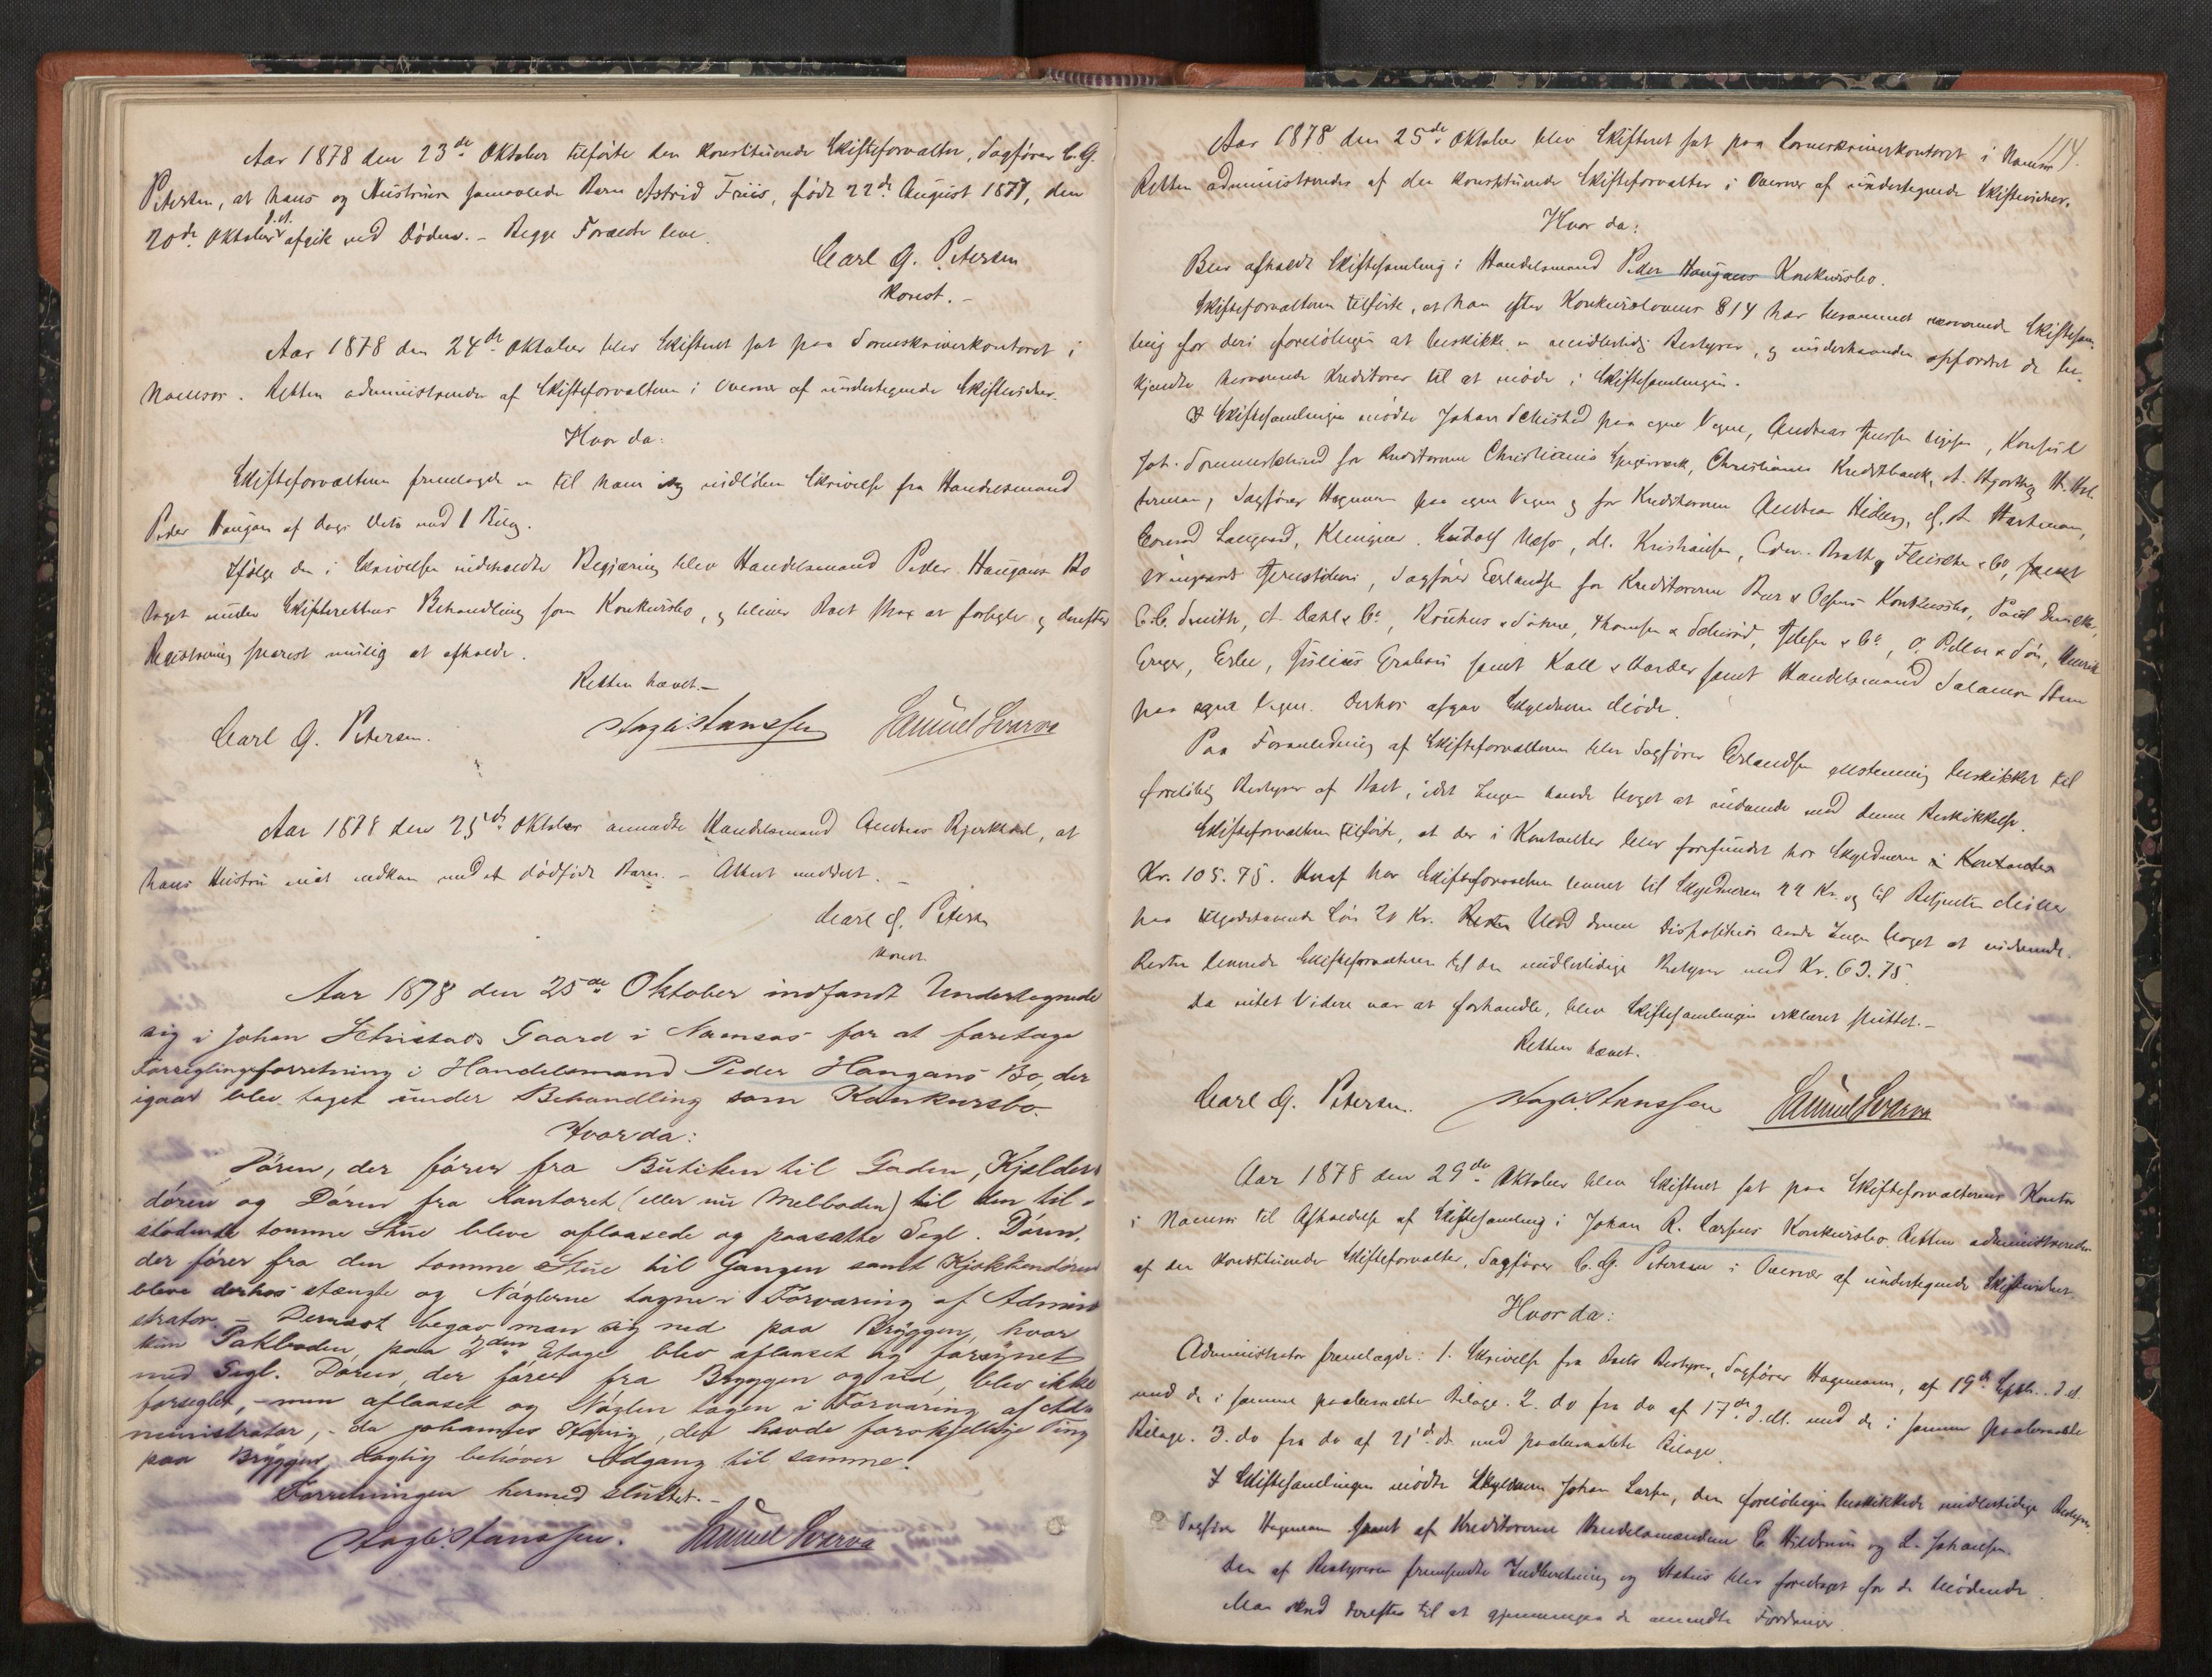 Aar 1878 den 23de Oktober tilførte den konstituerede Skifteforvalter, Sagfører C. G.
Petersen, at hans og Hustrues sammavlede Barn Astrid Friis, født 22de August 1877, den
20de Oktober d.A. afgik ved Døden. - Begge Forældre leve.
Carl G. Petersen
konst. -
Aar 1878 den 24de Oktober blev Skifteret sat paa Sorenskriverkontoret i
Namsos. Retten administreredes af Skifteforvalteren i Overvær af undertegnede Skiftevidner.
Hvor da:
Skifteforvalteren fremlagde en til ham indløben Skrivelse fra Handelsmand
Peder Haugan af Dags Dato med 1 Bilag.
Ifølge den i Skrivelsen indeholdte Begjæring blev Handelsmand Peder Haugans Bo
taget under Skifterettens Behandling som Konkursbo, og bliver Boet strax at forsegle og derefter
Registrering snarest mulig at afholde.
Retten hævet. -
Carl G. Petersen. Hansen Samuel Svarva
Aar 1878 den 25de Oktober anmeldte Handelsmand Andreas Bjerkdal, at
hans Hustru nedkom med et dødfødt Barn. - Attest meddelt. -
Carl G. Petersen
konst.
Aar 1878 den 25de Oktober indfandt Undertegnede
sig i Johan Schistads Gaard i Namsos for at foretage
Forseglingsforretning i Handelsmand Peder Haugans Bo, der
igaar blev taget under Behandling som Konkursbo.
Hvor da:
Døren, der fører fra Butiken til Gaden, Kjælder
døren og Døren fra Kontoret (eller nu Melboden) til den til-
stødende tomme Stue bleve aflaasede og paasatte Segl. Døren,
der fører fra den tomme Stue til Gangen samt Kjøkkendøren
bleve derhos stængte og Nøglerne tagne i Forvaring af Admini
strator. - Dernæst begav man sig ned paa Bryggen, hvor
kun Pakboden, paa 2den Etage blev aflaaset og forsynet
med Segl. Døren, der fører fra Bryggen og ud, blev ikke
forseglet, - men aflaaset og Nøglen tagen i Forvaring af Ad-
ministrator, - da Johannes Havig, der havde forskjellige Ting
paa Bryggen daglig behøver Adgang til samme.
Forretningen hermed sluttet. -
Hansen. Samuel Svarva
114.
Aar 1878 den 25de Oktober blev Skifteret sat paa Sorenskriverkontoret i Namsos
Retten administreredes af den konstituerede Skifteforvalter i Overvær af undertegnede Skiftevidner.
Hvor da:
Blev afholdt Skiftesamling i Handelsmand Peder Haugans Konkursbo.
Skifteforvalteren tilførte, at han efter Konkurslovens §14 har berammet nærværende Skiftesam-
ling for deri foreløbigen at beskikke en midlertidig Bestyrer, og underhaanden opfordret de be-
kjendte herværende Kreditorer til at møde i Skiftesamlingen.
I Skiftesamlingen mødte Johan Schistad paa egne Vegne, Andreas ligesaa, Konsul
Joh. Sommerschield for Kreditorerne Christiania Spigerværk, Christiania Kreditbank,
Sagfører Hagemann paa egne Vegne og for Kreditorerne Andreas Hartmann,
Conrad Langaard, Rudolf M. Kristiansen,
Sagfører Erlandsen for Kreditorerne Konkursbo, Paul
C. C. Smith, A. Dahl & Co, Thomsen & & Co, O. & Søn, Henrik
Julius samt samt Handelsmand Salamon
paa egne Vegne. Derhos afgav Skyldneren Møde.
Paa Foranledning af Skifteforvalteren blev Sagfører Erlandsen beskikket til
foreløbig Bestyrer af Boet, idet Ingen havde Noget at indvende mod denne Beskikkelse.
Skifteforvalteren tilførte, at der i Kontanter blev forefundet hos Skyldneren
Kr. 105.75. Heraf har Skifteforvalteren leveret til Skyldneren 22 Kr. og til Betjenten
paa tilgodehavende Løn 20 Kr. Mod denne Disposition havde Ingen Noget at indvende.
Resten leverede Skifteforvalteren til den midlertidige Bestyrer med Kr. 63.75.
Da intet Videre var at forhandle, blev Skiftesamlingen erklæret sluttet. -
Retten hævet.
Carl G. Petersen. Hansen Samuel Svarva
Aar 1878 den 29de Oktober blev Skifteret sat paa Skifteforvalterens Kontor
i Namsos til Afholdelse af Skiftesamling i Johan R. Larsens Konkursbo. Retten administreredes
af den konstituerede Skifteforvalter, Sagfører C. G. Petersen i Overvær af undertegnede Skiftevidner.
Hvor da:
Administrator fremlagde: 1. Skrivelse fra Boets Bestyrer, Sagfører Hagemann, af 19de Septbr. d.A.
med de i samme paaberaabte Bilage. 2. do fra do af 17de d.M. med de i samme paaberaabte
Bilage. 3. do fra do af 21de ds med paaberaabte Bilage.
I Skiftesamlingen mødte Skyldneren Johan Larsen, den foreløbigen beskikkede midlertidige Bestyrer
Sagfører Hagemann samt af Kreditorerne Handelsmændene C. Hildrum og L. Johansen.
Den af Bestyreren fremsendte Indberetning og Status blev foredraget for de Mødende.
Man skred derefter til at gjennemgaa de anmeldte Fordringer